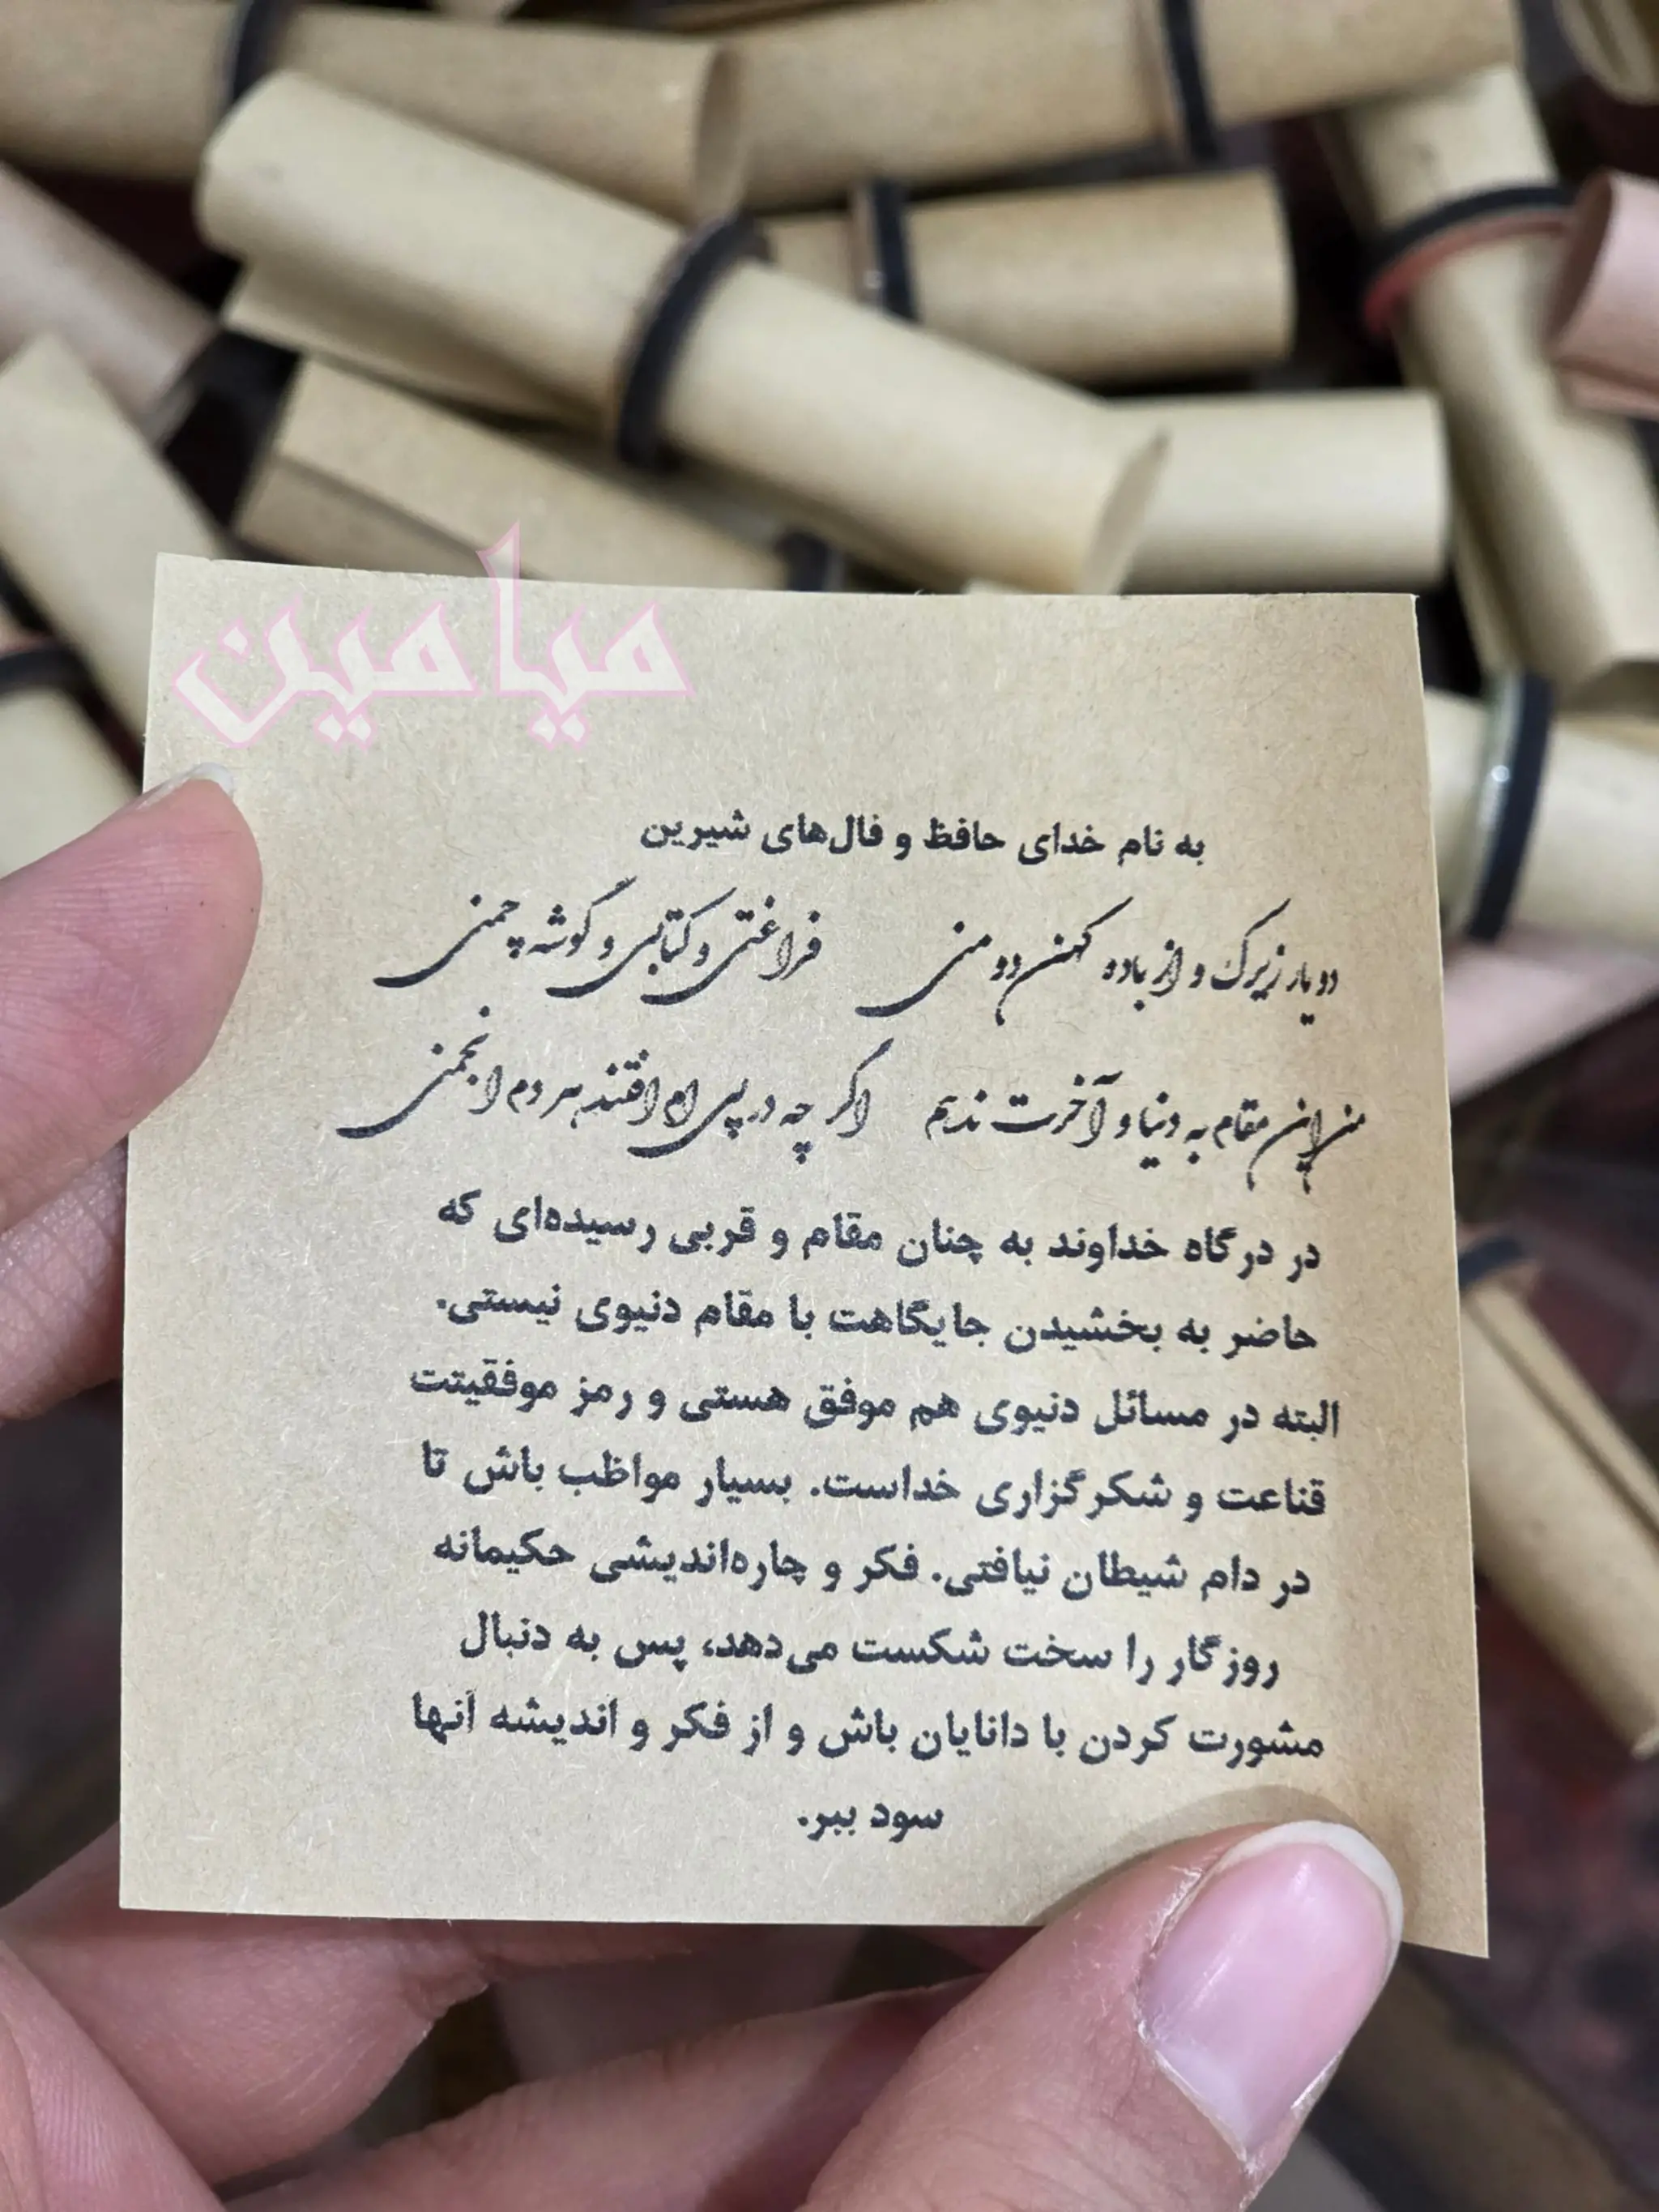 میامین
به نام خدای حافظ و فال‌های شیرین
دو یار زیرک و از باده کهن دو منی فراغتی و کتابی و گوشه چمنی
من این مقام به دنیا و آخرت ندهم اگر چه در پی ام افتند هر دم انجمنی
در درگاه خداوند به چنان مقام و قربی رسیده‌ای که
حاضر به بخشیدن جایگاهت با مقام دنیوی نیستی.
البته در مسائل دنیوی هم موفق هستی و رمز موفقیتت
قناعت و شکرگزاری خداست. بسیار مواظب باش تا
در دام شیطان نیافتی. فکر و چاره‌اندیشی حکیمانه
روزگار را سخت شکست می‌دهد، پس به دنبال
مشورت کردن با دانایان باش و از فکر و اندیشه آنها
سود ببر.